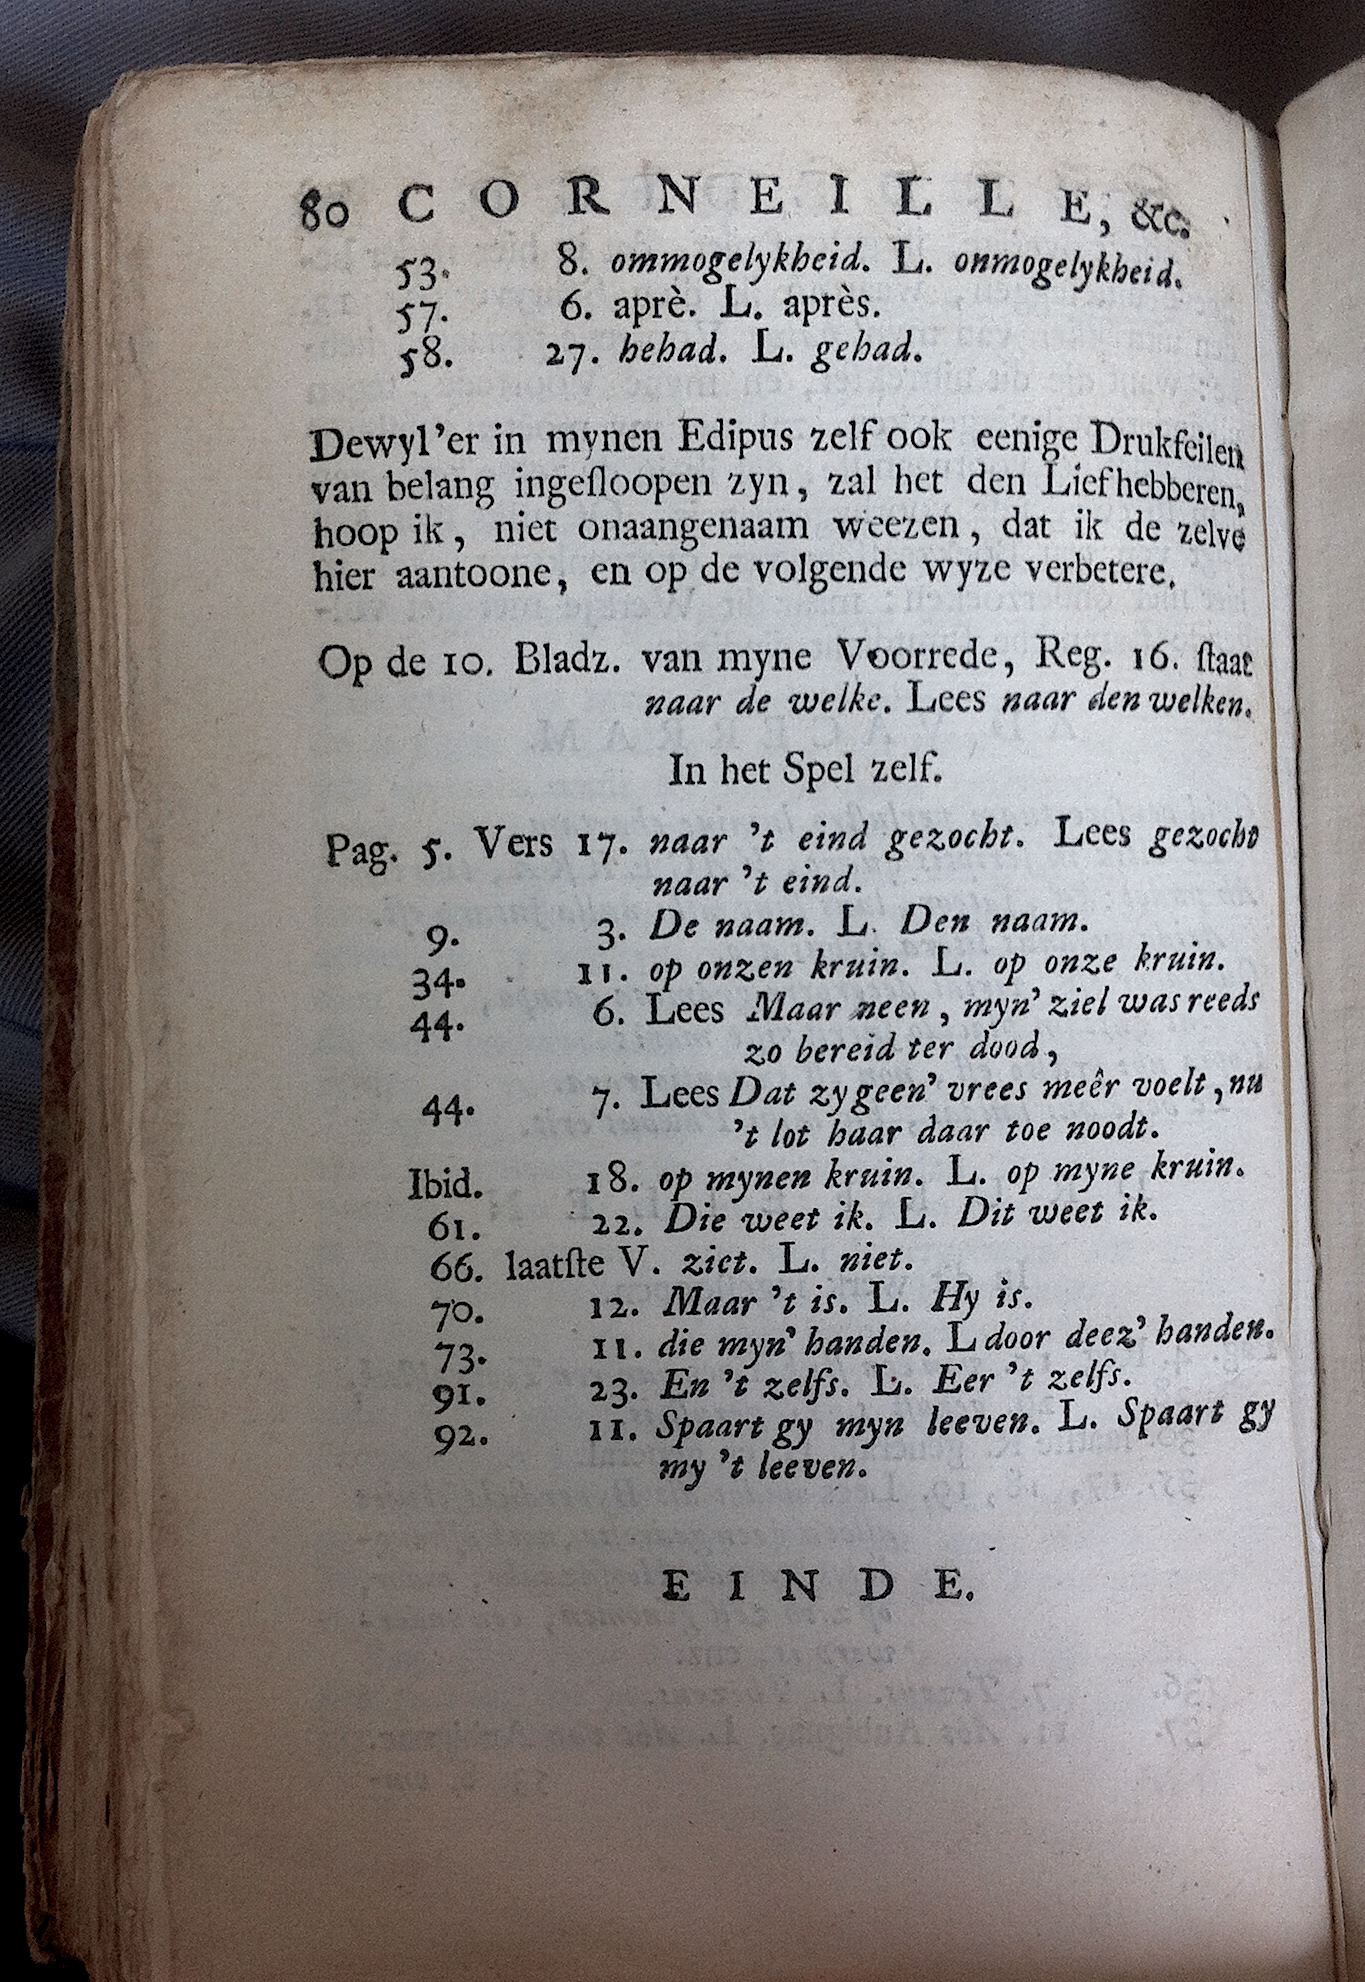 80 CORNEILLE, &c.
53. 8. ommogelykheid. L. onmogelykheid.
57. 6. aprè. L. après.
58. 27. hehad. L. gehad.
Dewyl'er in mynen Edipus zelf ook eenige Drukfeilen
van belang ingesloopen zyn, zal het den Liefhebberen,
hoop ik, niet onaangenaam weezen, dat ik de zelve
hier aantoone, en op de volgende wyze verbetere.
Op de 10. Bladz. van myne Voorrede, Reg. 16. ſtaat
naar de welke. Lees naar den welken.
In het Spel zelf.
Pag. 5. Vers 17. naar 't eind gezocht. Lees gezocht
naar 't eind.
9. 3. De naam. L. Den naam.
34. 11. op onzen kruin. L. op onze kruin.
44. 6. Lees Maar neen, myn' ziel was reeds
zo bereid ter dood,
44. 7. Lees Dat zy geen' vrees meêr voelt, nu
't lot haar daar toe noodt.
Ibid. 18. op mynen kruin. L. op myne kruin.
61. 22. Die weet ik. L. Dit weet ik.
66. laatſte V. ziet. L. niet.
70. 12. Maar 't is. L. Hy is.
73. 11. die myn' handen. L door deez' handen.
91. 23. En 't zelfs. L. Eer 't zelfs.
92. 11. Spaart gy myn leeven. L. Spaart gy
my 't leeven.
EINDE.